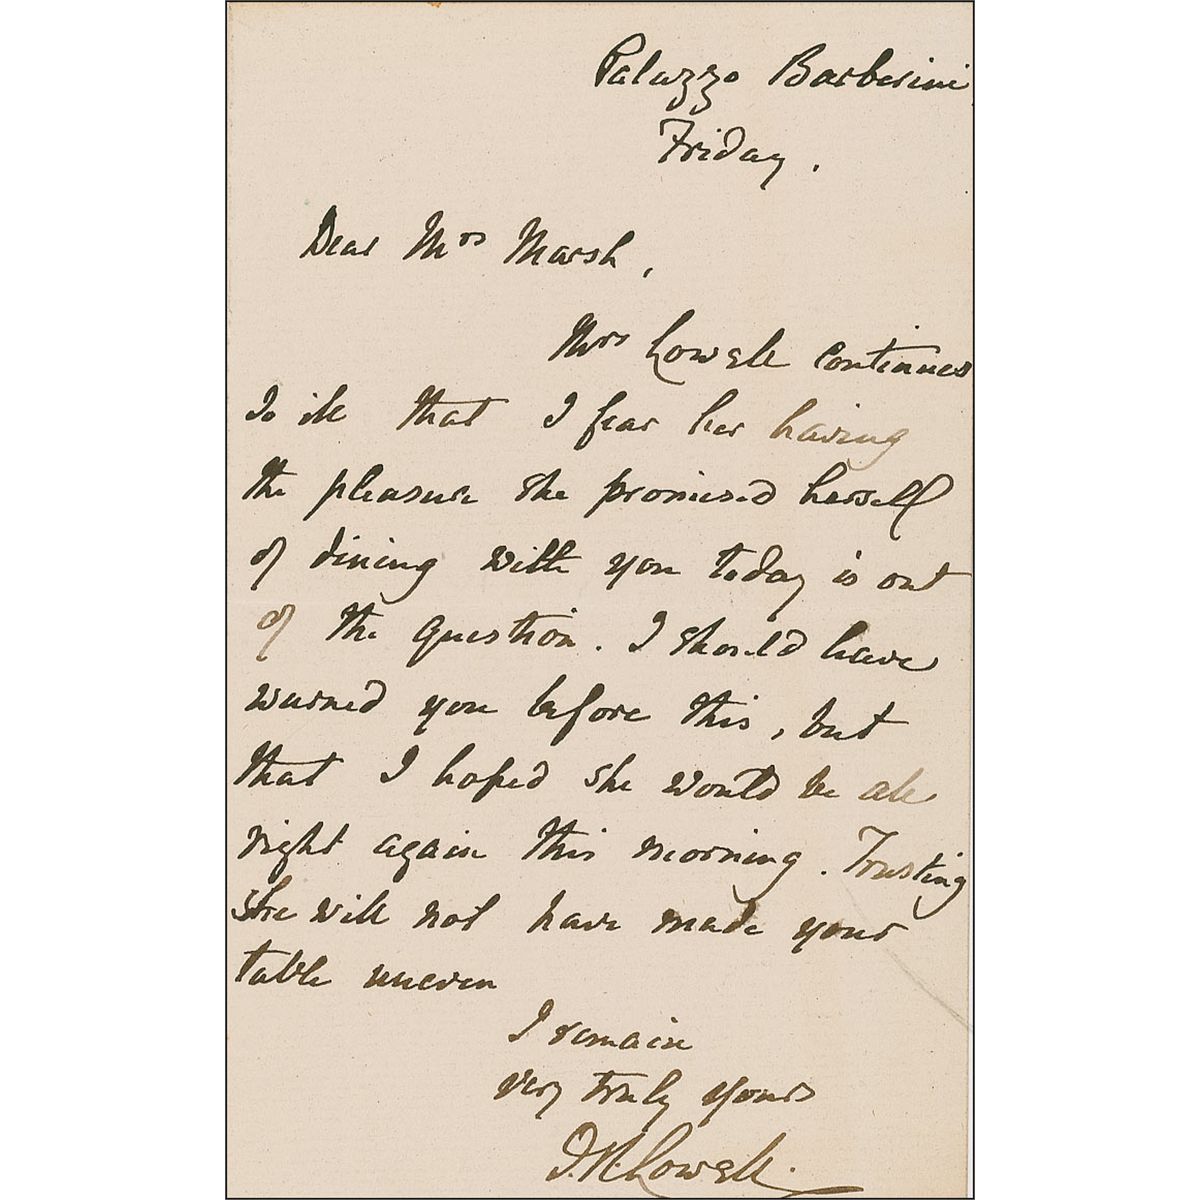 Palazzo Barberini,
Friday.
Dear Mrs Marsh,
Mrs Lowell continues
so ill that I fear her having
the pleasure she promised herself
of dining with you today is out
of the question. I should have
warned you before this, but
that I hoped she would be all
right again this morning. Trusting
she will not have made your
table uneven
I remain
very truly yours
J.R. Lowell.